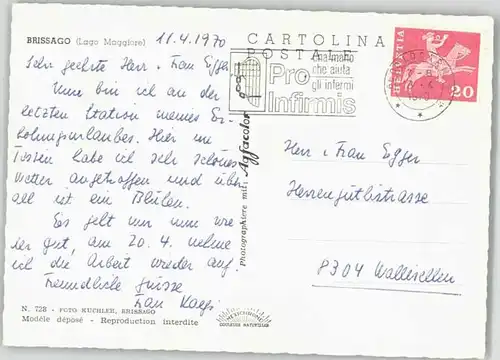 BRISSAGO (Lago Maggiore) 11.4.1970
Sehr geehrte Herr + Frau Egger.
Nun bin ich an der
letzten Station meines Er-
holungsurlaubes. Hier im
Tessin habe ich sehr schönes
Wetter angetroffen und über
all ist ein Blühen.
Es geht mir nun wie
der gut, am 20.4. nehme
ich die Arbeit wieder auf.
Freundliche Grüsse
Frau
N. 728 - FOTO KÜCHLER, BRISSAGO
Modèle déposé - Reproduction interdite
Photographiere mit: Agfacolor
CARTOLINA
POSTALE
Pro
Infirmis
Una mano
che aiuta
gli infermi
HELVETIA
20
Herr + Frau Egger
Herrengütlistrasse
8304 Wallisellen